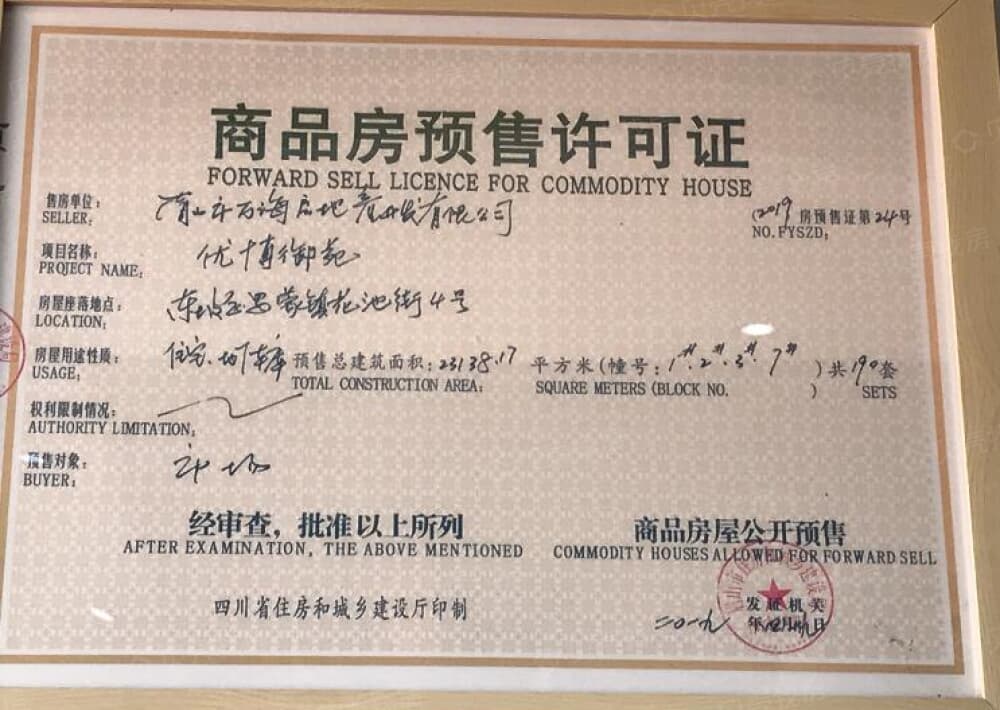 商品房预售许可证
FORWARD SELL LICENCE FOR COMMODITY HOUSE
售房单位: 眉山市万海房地产开发有限公司
SELLER:
(2019 房预售证第24号
NO.FYSZD:
项目名称: 优博御苑
PROJECT NAME:
房屋座落地点: 东坡区思蒙镇花池街4号
LOCATION:
房屋用途性质: 住宅、车库 预售总建筑面积:23138.17 平方米(幢号:1#.2#.3#.7# )共190套
USAGE: TOTAL CONSTRUCTION AREA: SQUARE METERS (BLOCK NO. ) SETS
权利限制情况:
AUTHORITY LIMITATION:
预售对象:
BUYER:
经审查，批准以上所列 商品房屋公开预售
AFTER EXAMINATION, THE ABOVE MENTIONED COMMODITY HOUSES ALLOWED FOR FORWARD SELL
四川省住房和城乡建设厅印制
发证机关
二〇一九年 月 日